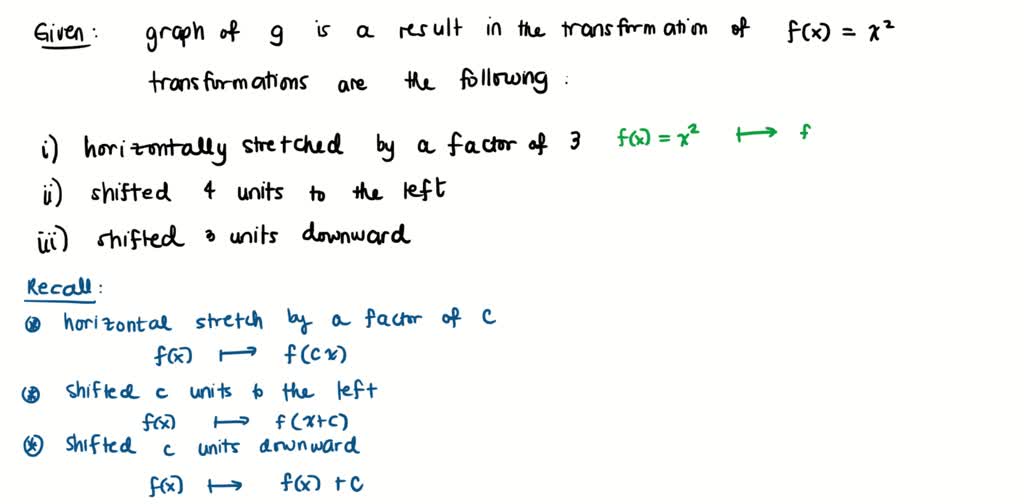 Given: graph of g is a result in the transformation of f(x) = x²
transformations are the following:
i) horizontally stretched by a factor of 3 f(x) = x² ↦ f
ii) shifted 4 units to the left
iii) shifted 3 units downward
Recall:
⊛ horizontal stretch by a factor of c
f(x) ↦ f(cx)
⊛ shifted c units to the left
f(x) ↦ f(x+c)
⊛ shifted c units downward
f(x) ↦ f(x) + c